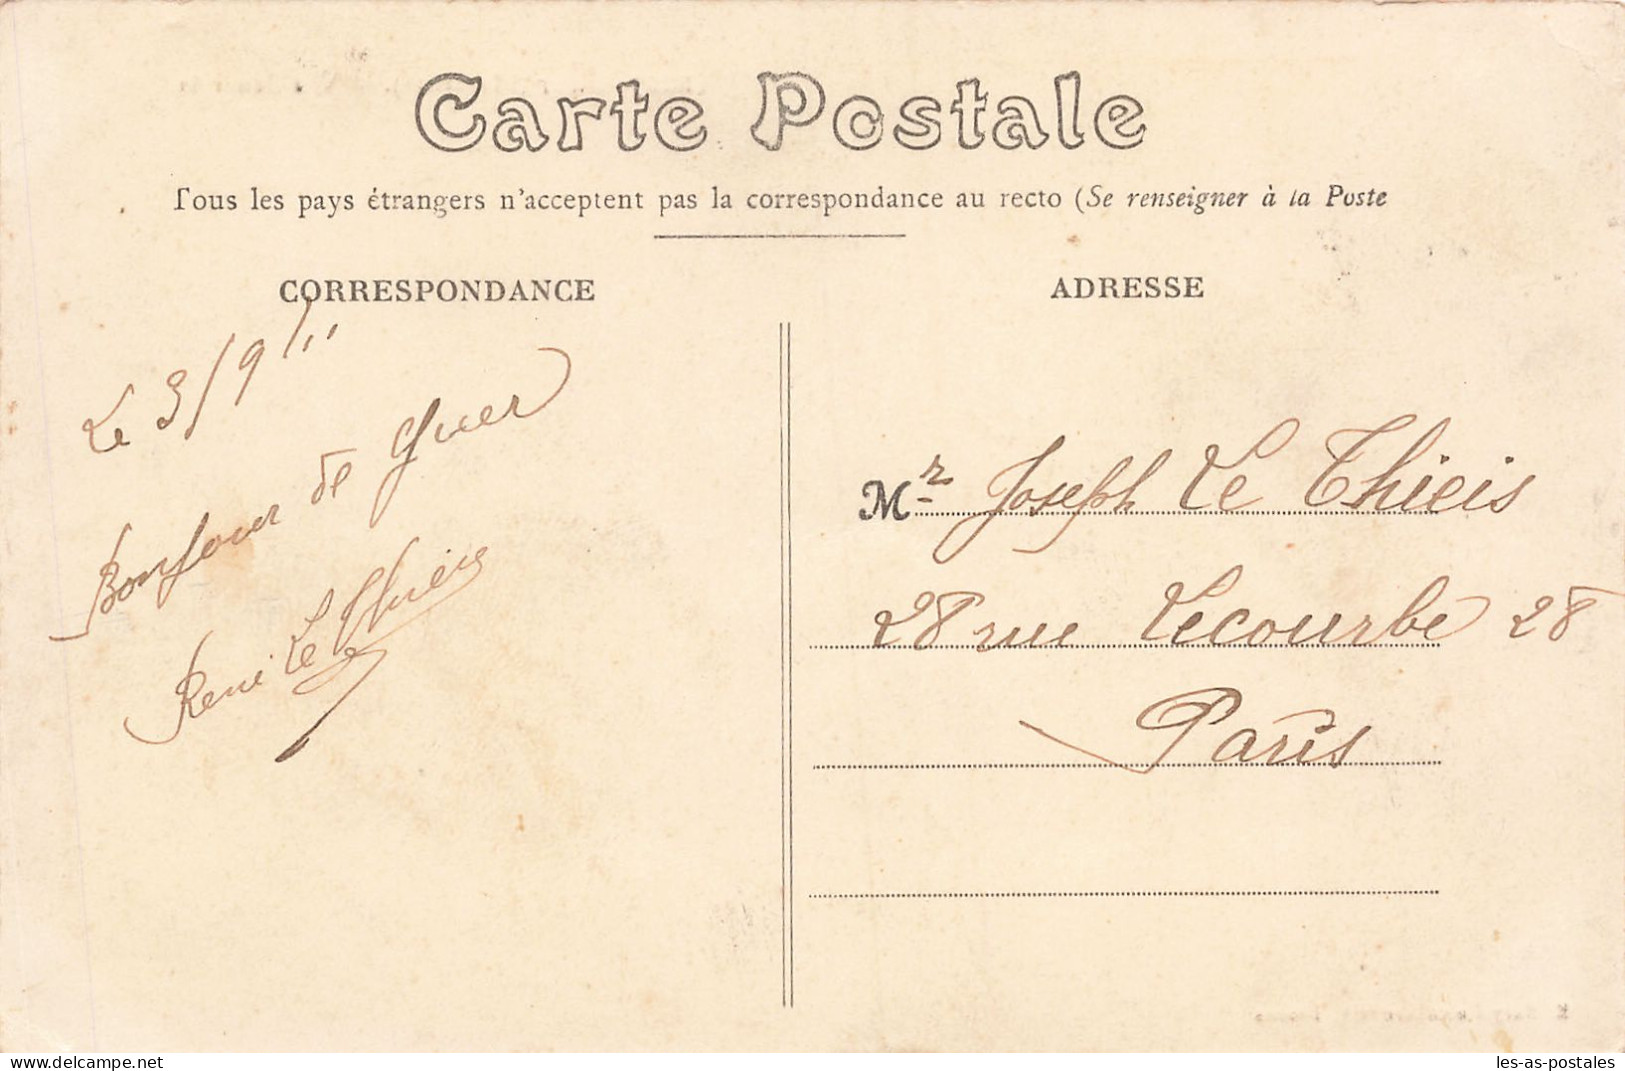 Carte Postale
Tous les pays étrangers n'acceptent pas la correspondance au recto (Se renseigner à la Poste
CORRESPONDANCE
Le 3/9/11
Bonjour de Guer
René Le Thieis
ADRESSE
Mr Joseph Le Thieis
28 rue Lecourbe 28
Paris
delcampe.net
les-as-postales